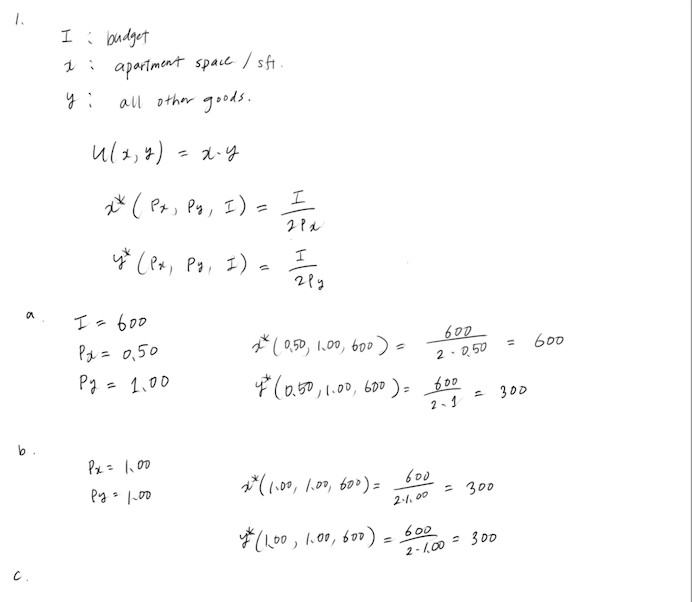 1.
I : budget
x : apartment space / sft.
y : all other goods.
u(x, y) = x · y
x* (Px, Py, I) = I / 2Px
y* (Px, Py, I) = I / 2Py
a.
I = 600
Px = 0.50 x* (0.50, 1.00, 600) = 600 / 2 · 0.50 = 600
Py = 1.00 y* (0.50, 1.00, 600) = 600 / 2 · 1 = 300
b.
Px = 1.00 x* (1.00, 1.00, 600) = 600 / 2 · 1.00 = 300
Py = 1.00
y* (1.00, 1.00, 600) = 600 / 2 · 1.00 = 300
c.